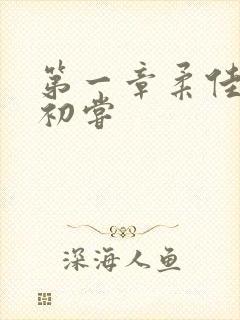 第一章柔佳
初尝
深海人鱼